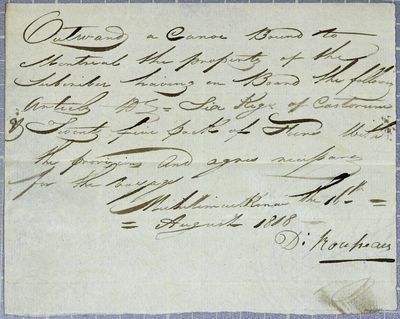 Outward a Canoe Bound to
Montreal the property of the
Subscriber having on Board the follow
Six Kegs of Castorum
& Twenty five Packs of Furs With
the provisions And agres necessary
for the Voyage
Michilimackinac the 16th =
= August 1818 -